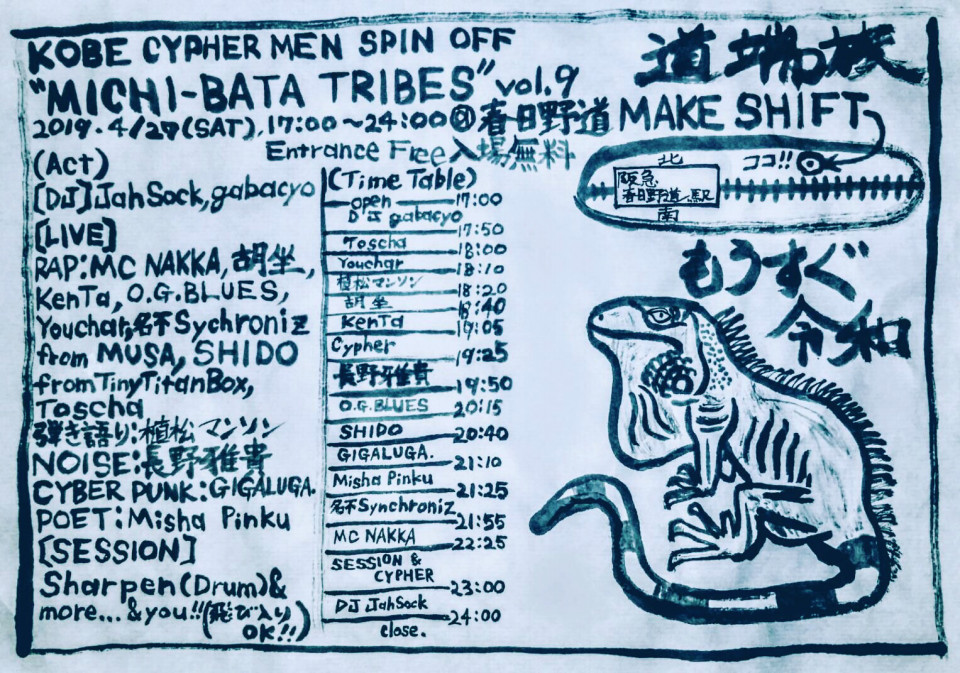 KOBE CYPHER MEN SPIN OFF
"MICHI-BATA TRIBES" vol.9
2019.4/27(SAT), 17:00~24:00@春日野道 MAKE SHIFT
Entrance Free 入場無料
道端族
北
ココ!!
阪急
春日野道駅
南
もうすぐ
令和
(Act)
[DJ] Jah Sock, gabacyo
[LIVE]
RAP:MC NAKKA, 胡坐,
KenTa, O.G.BLUES,
Youchar, 名不Sychroniz
from MUSA, SHIDO
from TinyTitanBox,
Toscha
弾き語り:植松マンソン
NOISE:長野雅貴
CYBER PUNK:GIGALUGA.
POET:Misha Pinku
[SESSION]
Sharpen(Drum)&
more...&you!!(飛び入り
OK!!)
(Time Table)
open 17:00
DJ gabacyo
17:50
Toscha
18:00
Youchar
18:10
植松マンソン
18:20
胡坐
18:40
KenTa
19:05
Cypher
19:25
長野雅貴
19:50
O.G.BLUES
20:15
SHIDO
20:40
GIGALUGA.
21:10
Misha Pinku
21:25
名不Synchroniz
21:55
MC NAKKA
22:25
SESSION &
CYPHER
23:00
DJ Jah Sock
24:00
close.